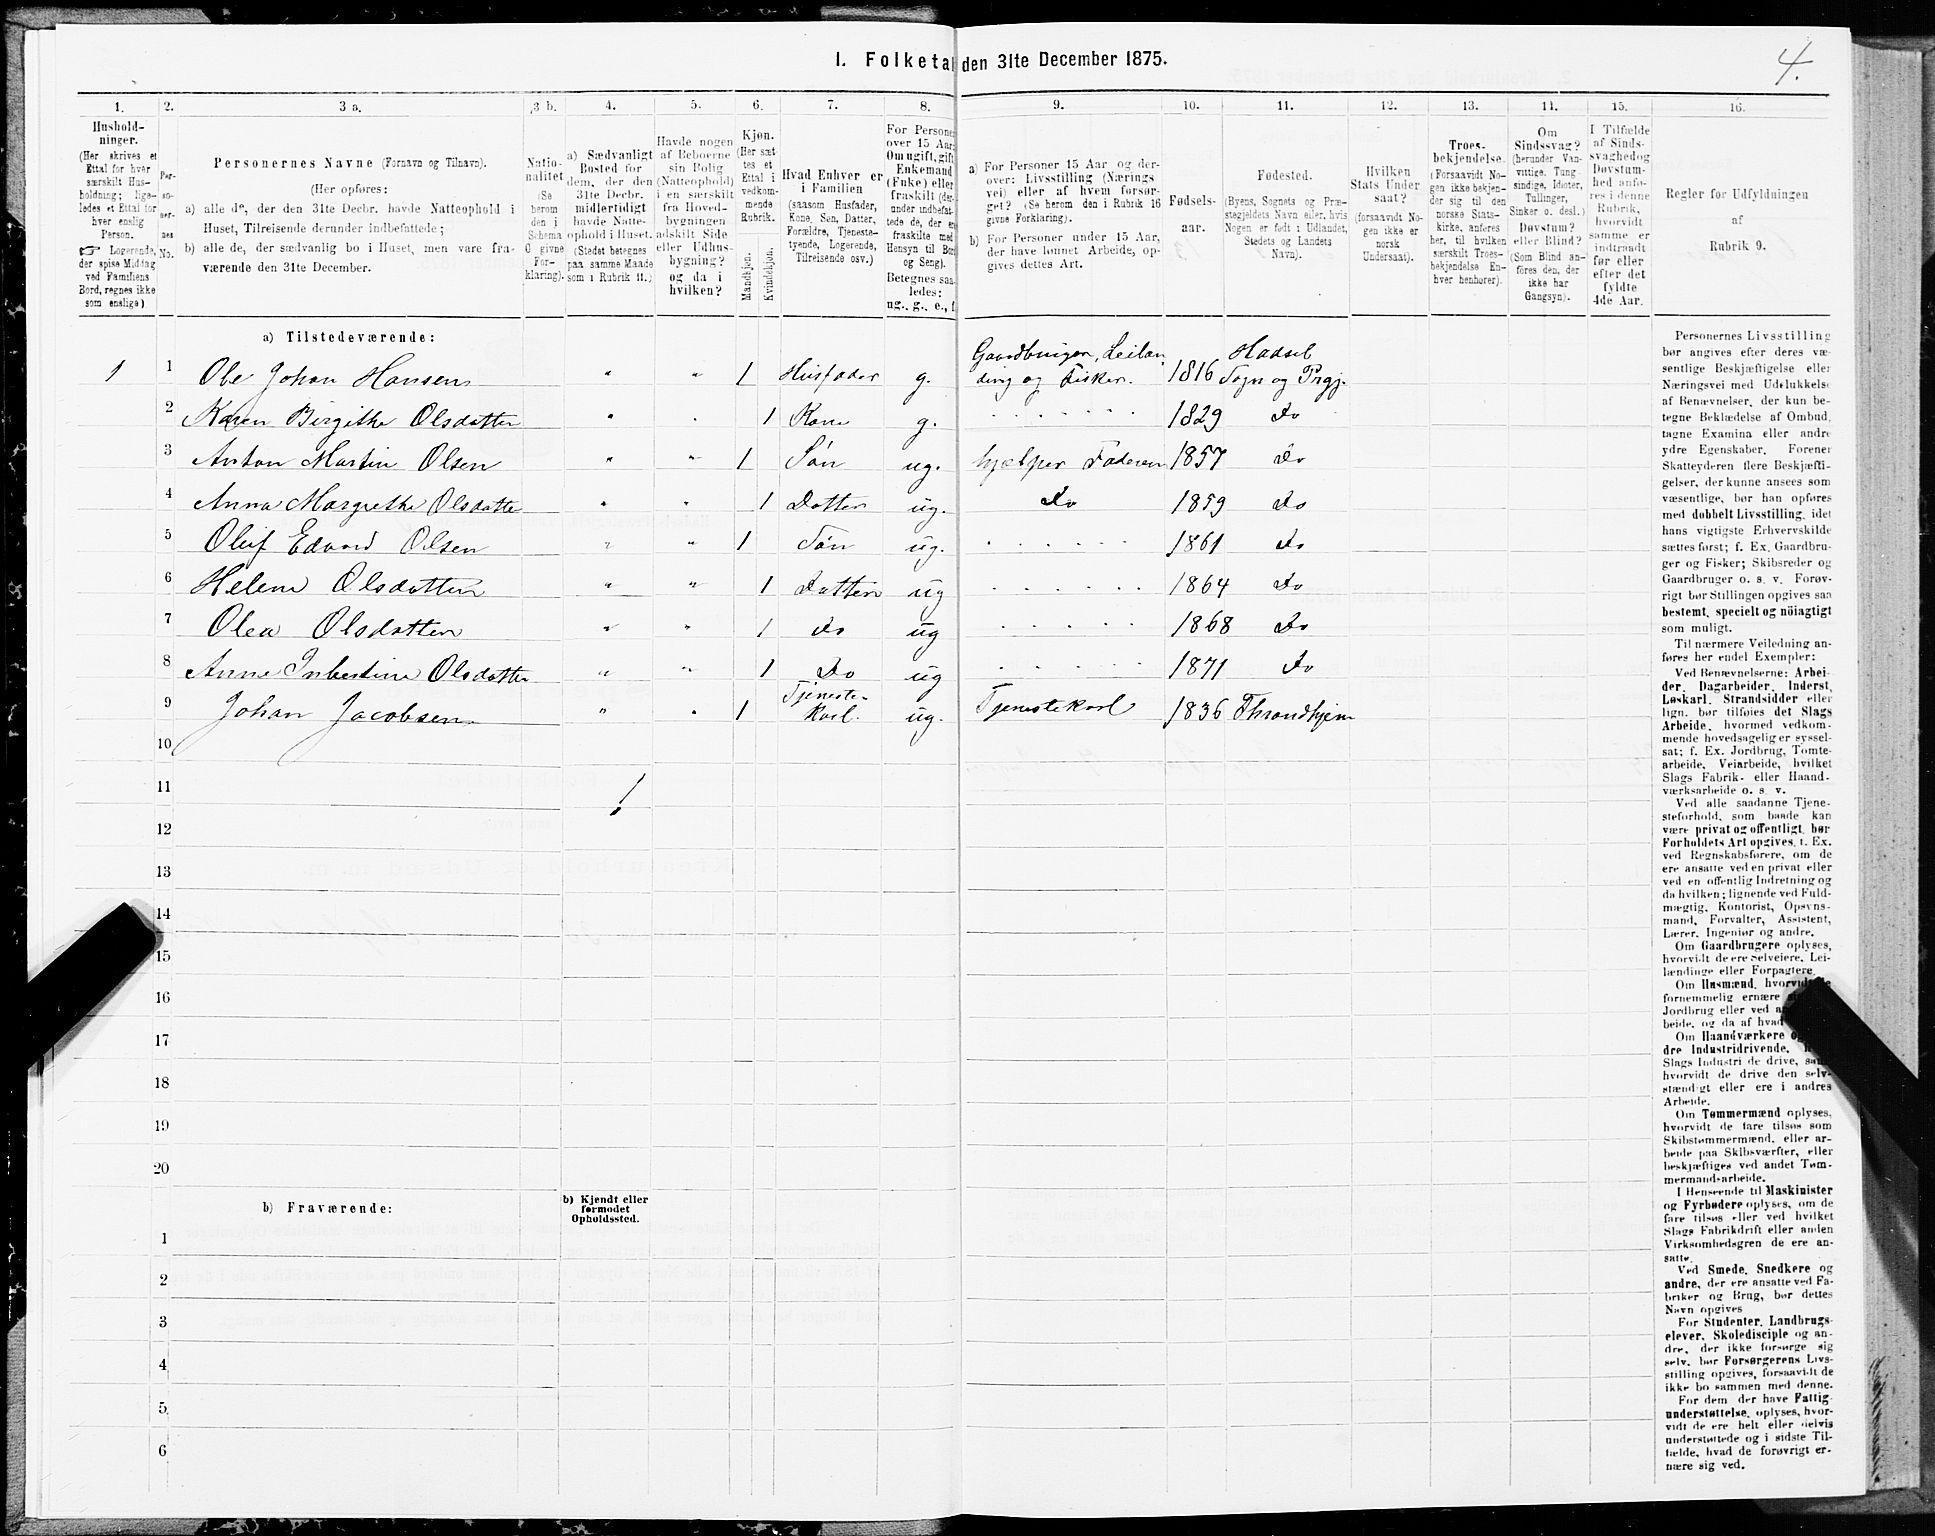 4.
I. Folketal den 31te December 1875.
1. 2. 3 a. 3 b. 4. 5. 6. 7. 8. 9. 10. 11. 12. 13. 14. 15. 16.
Hushold-
ninger.
(Her skrives et
Ettal for hver
særskilt Hus-
holdning; lige-
ledes et Ettal for
hver enslig
Person.
☞ Logerende,
der spise Middag
ved Familiens
Bord, regnes ikke
som enslige)
Per-
so-
ner-
nes
No.
Personernes Navne (Fornavn og Tilnavn).
(Her opføres:
a) alle de, der den 31te Decbr. havde Natteophold i
Huset, Tilreisende derunder indbefattede;
b) alle de, der sædvanlig bo i Huset, men vare fra-
værende den 31te December.
Natio-
nalitet
(Se
herom
den i
Schema
O givne
For-
klaring).
a) Sædvanligt
Bosted for
dem, der den
31te Decbr.
midlertidigt
havde Natte-
ophold i Huset.
(Stedet betegnes
paa samme Maade
som i Rubrik 11.)
Havde nogen
af Beboerne
sin Bolig
(Natteophold)
i en særskilt
fra Hoved-
bygningen
adskilt Side
eller Udhus-
bygning?
og da i
hvilken?
Kjøn.
(Her sæt-
tes et
Ettal i
vedkom-
mende
Rubrik.
Mandkjøn.
Kvindekjøn.
Hvad Enhver er
i Familien
(saasom Husfader,
Kone, Søn, Datter,
Forældre, Tjeneste-
tyende, Logerende,
Tilreisende osv.)
For Persone
over 15 Aar:
Om ugift, gift
Enkemand
(Enke) eller
fraskilt (der-
under indbefat-
tede de, der er
fraskilte med
Hensyn til Bor
og Seng).
Betegnes saa-
ledes:
ug., g., e., f.
a) For Personer 15 Aar og der-
over: Livsstilling (Nærings
vei) eller af hvem forsør-
get? (Se herom den i Rubrik 16
givne Forklaring).
b) For Personer under 15 Aar,
der have lønnet Arbeide, op-
gives dettes Art.
Fødsels-
aar.
Fødested.
(Byens, Sognets og Præ-
stegjeldets Navn eller, hvis
Nogen er født i Udlandet,
Stedets og Landets
Navn).
Hvilken
Stats Under
saat?
(forsaavidt No-
gen ikke er
norsk
Undersaat).
Troes-
bekjendelse.
(Forsaavidt No-
gen ikke bekjen-
der sig til den
norske Stats-
kirke, anføres
her, til hvilken
særskilt Troes-
bekjendelse En-
hver henhører).
Om
Sindssvag?
(herunder Van-
vittige, Tung-
sindige, Idioter,
Tullinger,
Sinker o. desl.)
Døvstum?
eller Blind?
(Som Blind an-
føres den, der
ikke har
Gangsyn).
I Tilfælde
af Sinds-
svaghed og
Døvstum-
hed anfø-
res i denne
Rubrik,
hvorvidt
samme er
indtraadt
før eller
efter det
fyldte
4de Aar.
Regler for Udfyldningen
af
Rubrik 9.
a) Tilstedeværende:
Gaardbruger, Leilæn Hadsel
1 1 Ole Johan Hansen " " 1 Husfader g. ding og Fisker. 1816 Sogn og Prgj.
2 Karen Birgithe Olsdatter " . 1 Kone g. . . . . . . . 1829 Do
3 Anton Martin Olsen " " 1 Søn ug. hjælper Faderen 1857 Do
4 Anna Margrethe Olsdatte " " 1 Datter ug. Do 1859 Do
5 Oluf Edvard Olsen " " 1 Søn ug. . . . . . . 1861 Do
6 Helene Olsdatter " " 1 Datter ug . . . . . . 1864 Do
7 Olea Olsdatter " " 1 Do ug . . . . . . 1868 Do
8 Anne Olsdatter " " 1 Do ug . . . . . . 1871 Do
9 Johan Jacobsen " " 1 Tjeneste-
Karl. ug. Tjenestekarl 1836 Throndhjem
10
11
12
13
14
15
16
17
18
19
20
b) Fraværende:
b) Kjendt eller
formodet
Opholdssted.
1
2
3
4
5
6
Personernes Livsstilling
bør angives efter deres væ-
sentlige Beskjæftigelse eller
Næringsvei med Udelukkelse
af Benævnelser, der kun be-
tegne Beklædelse af Ombud,
tagne Examina eller andre
ydre Egenskaber. Forener
Skatteyderen flere Beskjæfti-
gelser, der kunne ansees som
væsentlige, bør han opføres
med dobbelt Livsstilling, idet
hans vigtigste Erhvervskilde
sættes først; f. Ex. Gaardbru-
ger og Fisker; Skibsreder og
Gaardbruger o. s. v. Forøv-
rigt bør Stillingen opgives saa
bestemt, specielt og nöiagtigt
som muligt.
Til nærmere Veiledning an-
føres her endel Exempler:
Ved Benævnelserne: Arbei-
der, Dagarbeider, Inderst,
Løskarl, Strandsidder eller
lign. bør tilføies det Slags
Arbeide, hvormed vedkom-
mende hovedsagelig er syssel-
sat; f. Ex. Jordbrug, Tomte-
arbeide, Veiarbeide, hvilket
Slags Fabrik- eller Haand-
værksarbeide o. s. v.
Ved alle saadanne Tjene-
steforhold, som baade kan
være privat og offentligt, bør
Forholdets Art opgives, t. Ex.
ved Regnskabsførere, om de
ere ansatte ved en privat eller
ved en offentlig Indretning og
da hvilken; lignende ved Fuld-
mægtig, Kontorist, Opsyns-
mand, Forvalter, Assistent,
Lærer, Ingeniør og andre.
Om Gaardbrugere oplyses,
hvorvidt de ere Selveiere, Lei-
lændinge eller Forpagtere.
Om Husmænd, hvorvidt de
fornemmelig ernære
Jordbrug eller ved a
beide, og da af hvad
Om Haandværkere o
dre Industridrivende,
Slags Industri de drive, sam
hvorvidt de drive den selv-
stændigt eller ere i andres
Arbeide.
Om Tømmermænd oplyses,
hvorvidt de fare tilsøs som
Skibstømmermænd, eller ar-
beide paa Skibsværfter, eller
beskjæftiges ved andet Tøm-
mermandsarbeide.
I Henseende til Maskinister
og Fyrbødere oplyses, om de
fare tilsøs eller ved hvilket
Slags Fabrikdrift eller anden
Virksomhedsgren de ere an-
satte.
Ved Smede, Snedkere og
andre, der ere ansatte ved Fa-
briker og Brug, bør dettes
Navn opgives
For Studenter, Landbrugs-
elever, Skoledisciple og an-
dre, der ikke forsørge sig
selv, bør Forsørgerens Livs-
stilling opgives, forsaavidt de
ikke bo sammen med denne.
For dem der have Fattig-
understøttelse, oplyses, hvor-
vidt de ere helt eller delvis
understøttede og i sidste Til-
fælde, hvad de forøvrigt er-
nære sig ved.